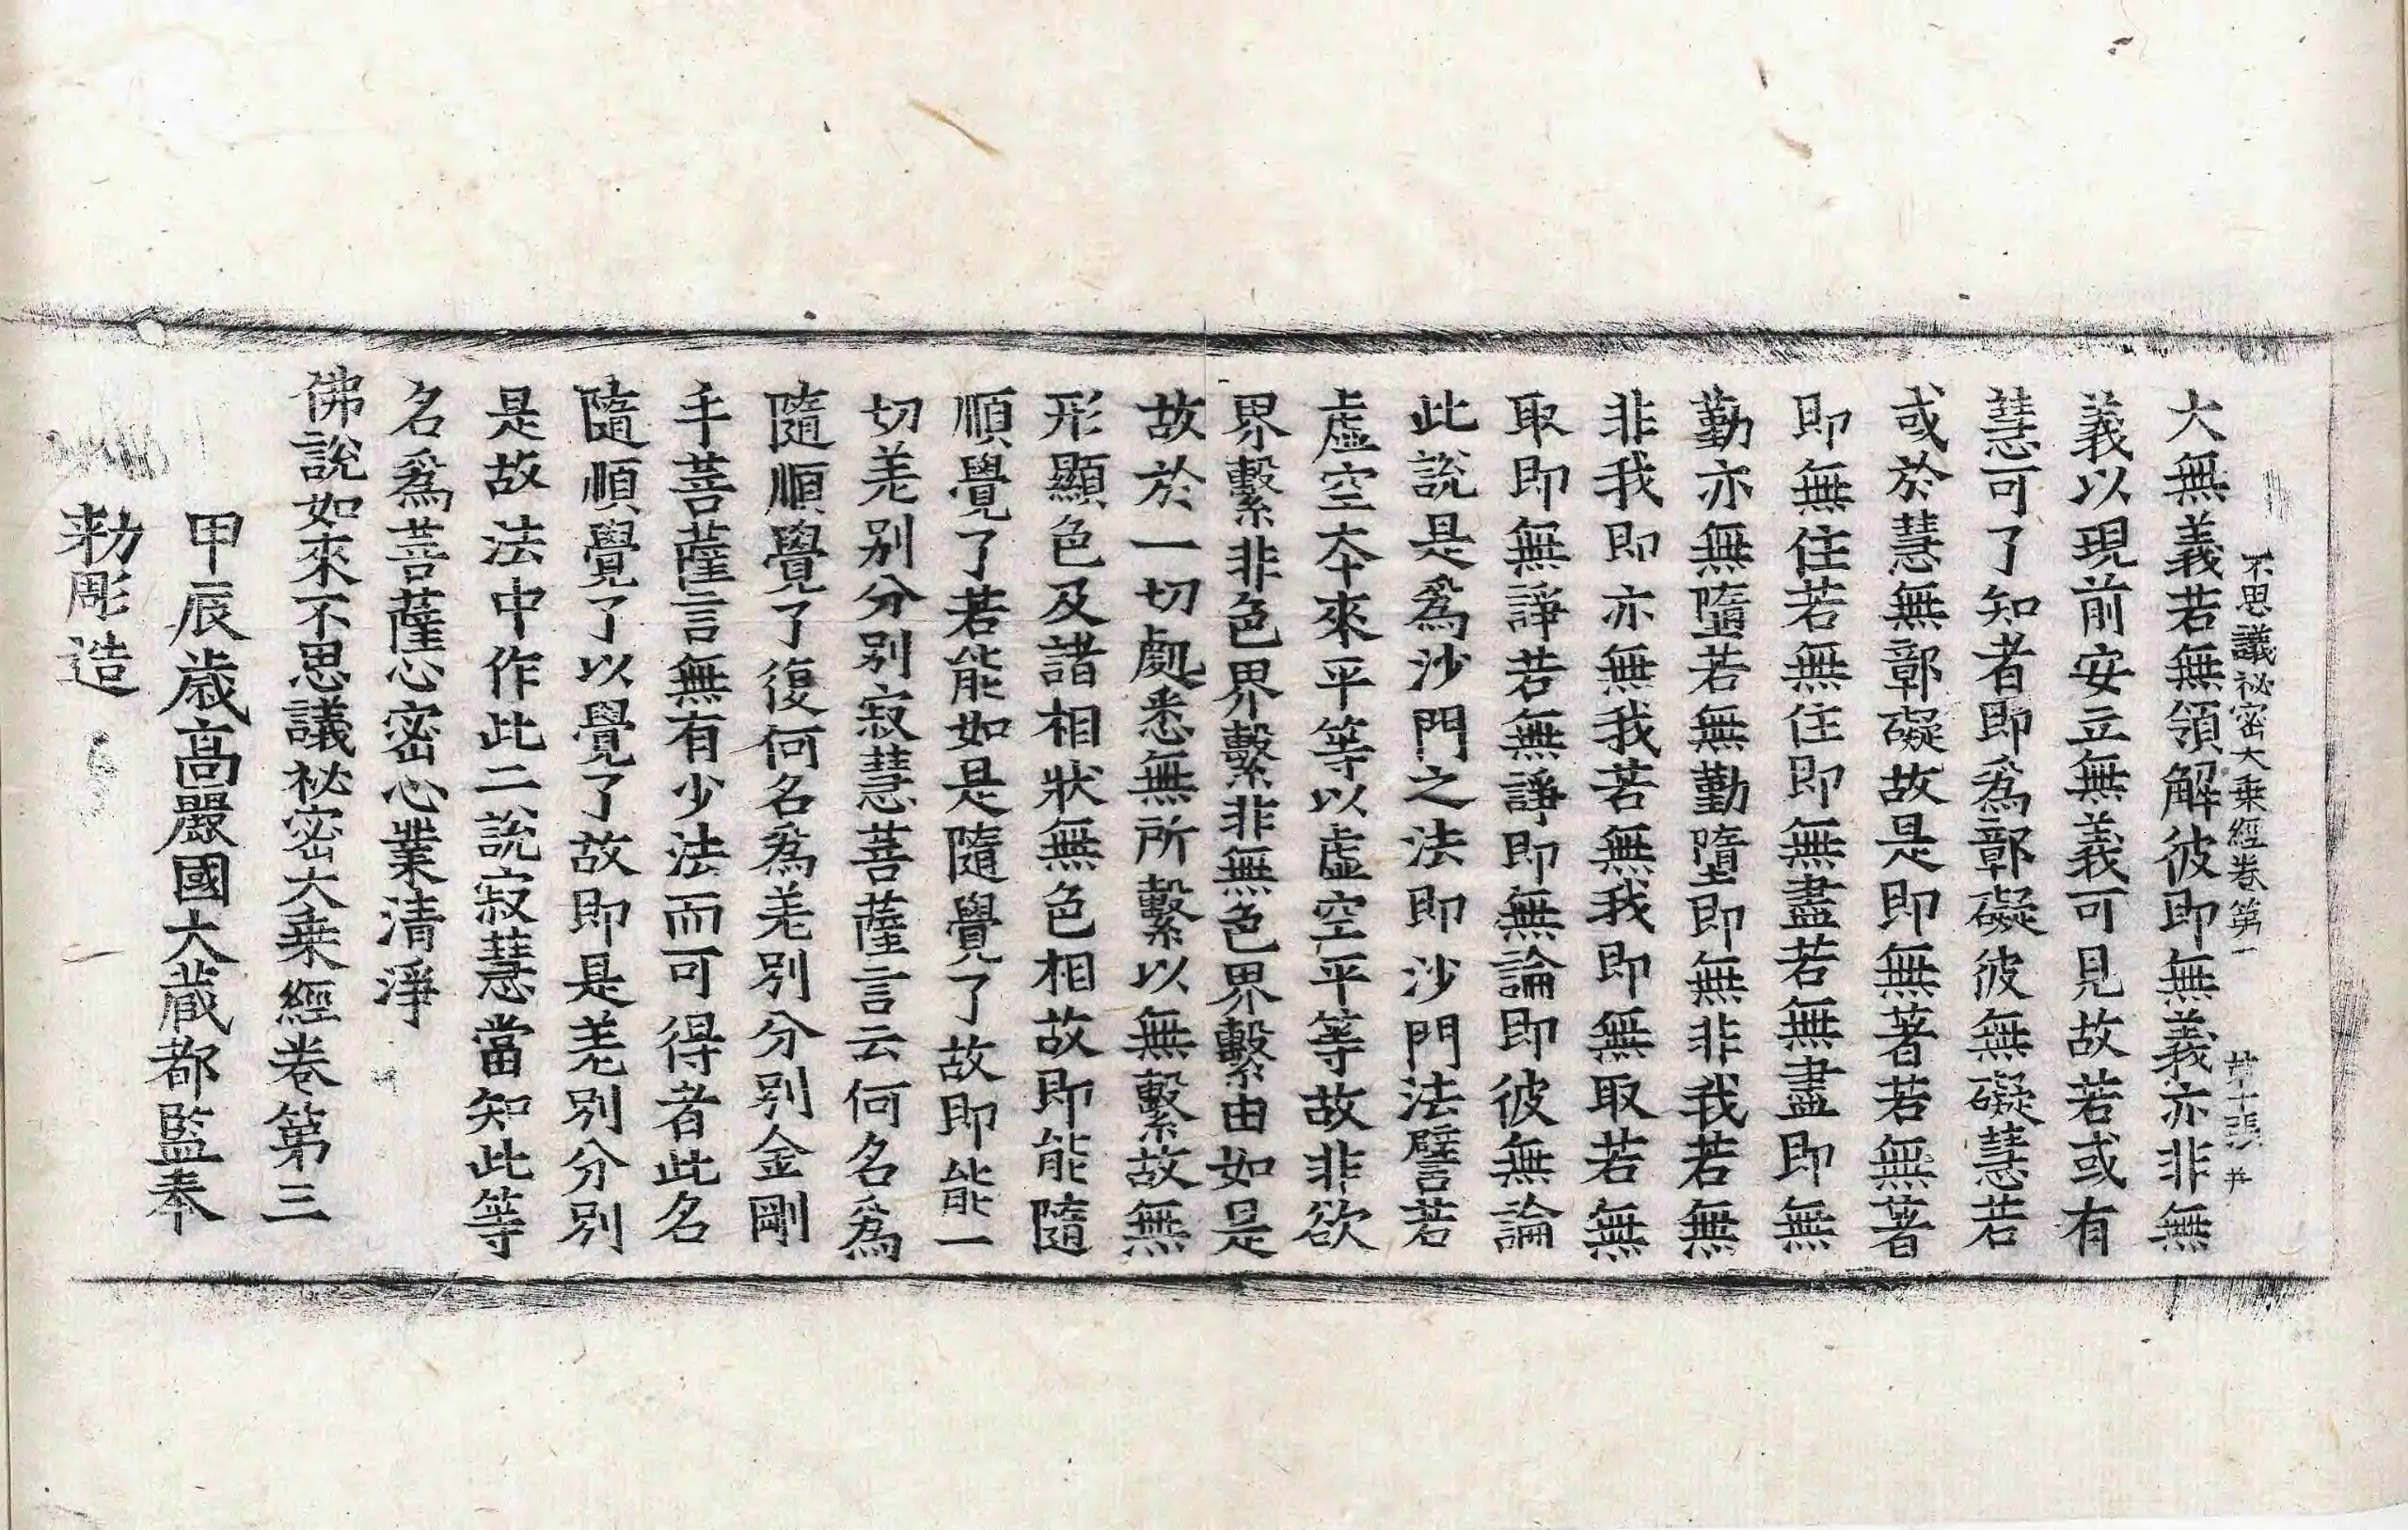 不思議祕密大乗經卷第一 第十張 井
大無義若無領解彼即無義亦非無
義以現前安立無義可見故若或有
慧可了知者即爲鄣礙彼無礙慧若
或於慧無鄣礙故是即無著若無著
即無住若無住即無盡若無盡即無
勤亦無墮若無勤墮即無非我若無
非我即亦無我若無我即無取若無
取即無諍若無諍即無論即彼無論
此說是爲沙門之法即沙門法譬若
虛空本來平等以虛空平等故非欲
界繫非色界繫非無色界繫由如是
故於一切處悉無所繫以無繫故無
形顯色及諸相狀無色相故即能隨
順覺了若能如是隨覺了故即能一
切差别分别寂慧菩薩言云何名爲
隨順覺了復何名爲差别分别金剛
手菩薩言無有少法而可得者此名
隨順覺了以覺了故即是差别分别
是故法中作此二說寂慧當知此等
名爲菩薩心密心業清淨
佛說如來不思議祕密大乗經卷第三
甲辰歳高麗國大藏都監奉
勑彫造